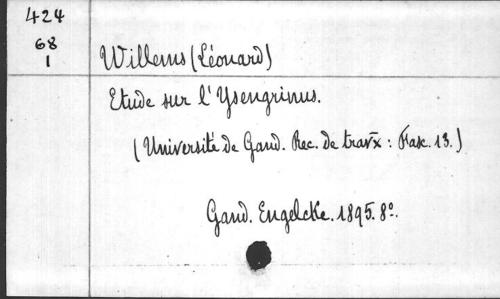 424
68
1
Willems (Léonard)
Etude sur l'Ysengrinus.
(Université de Gand. Rec. de trav̄x : Fasc. 13.)
Gand. Engelcke. 1895. 8º.